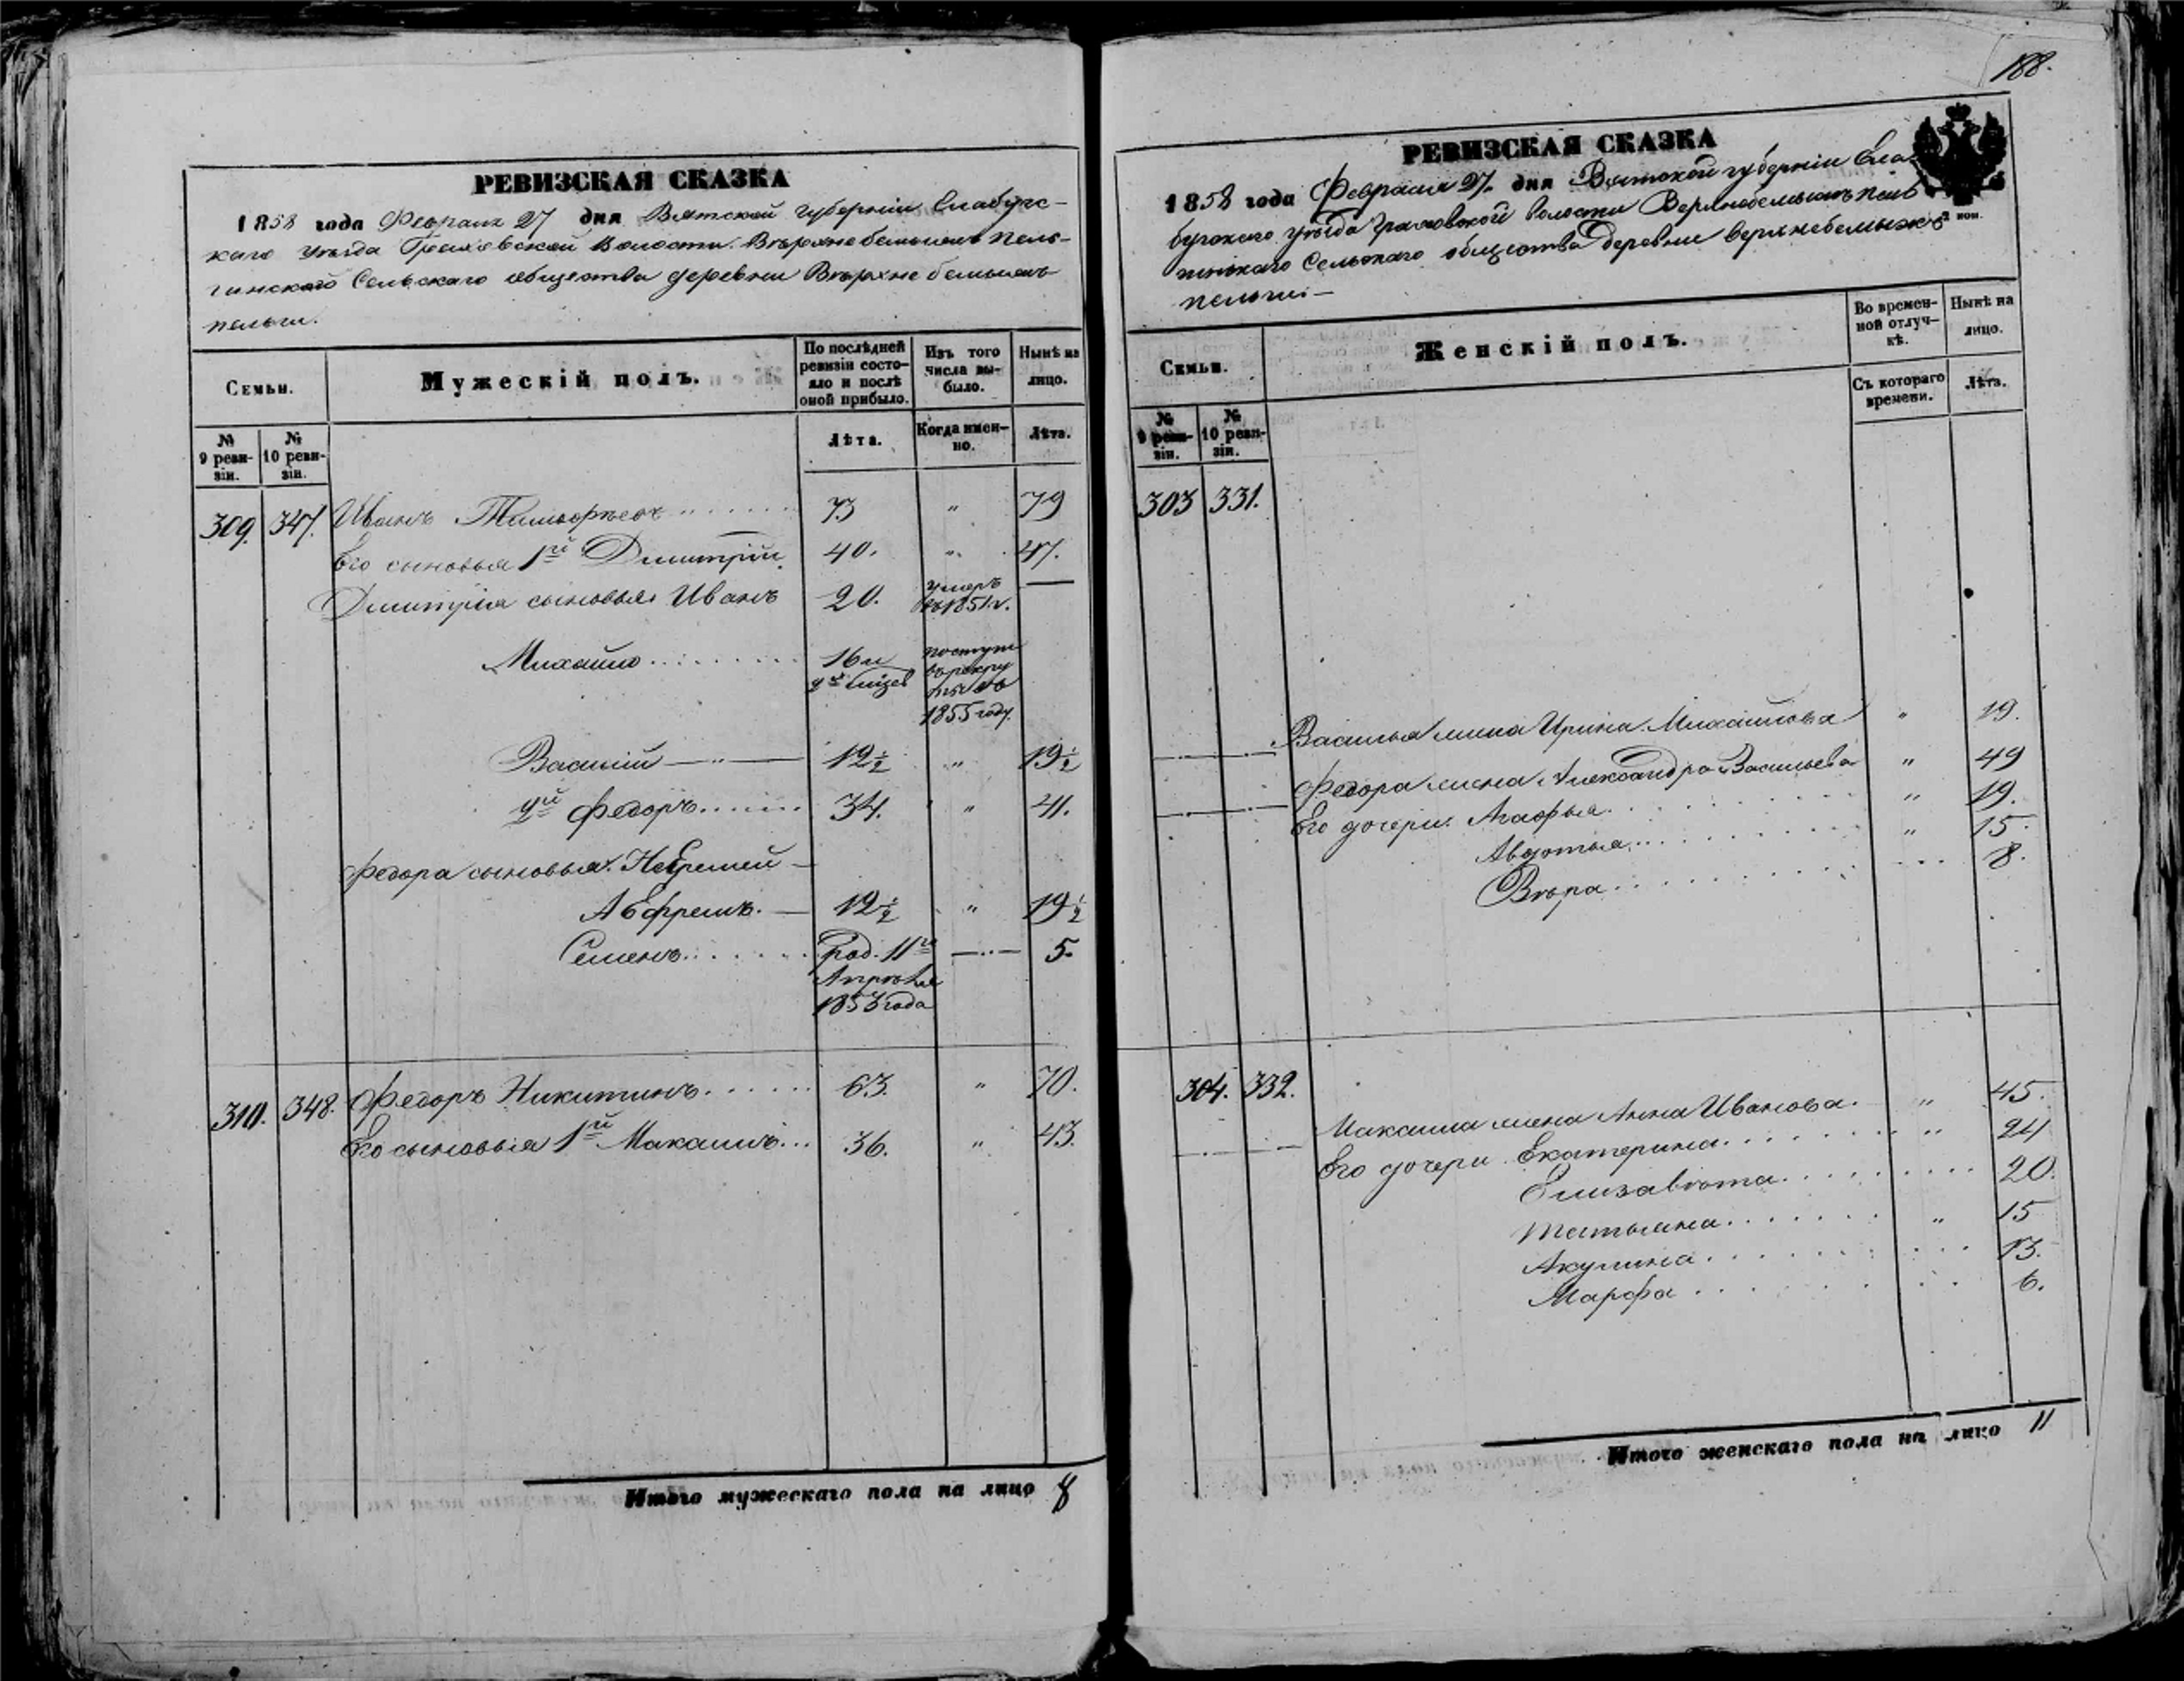 188.
РЕВИЗСКАЯ СКАЗКА
1858 года Февраля 27 дня Вятской губерніи Елабужс-
каго уѣзда Граховской Волости Вѣрхнебемыжъ Пель-
гинскаго Сельскаго общества деревни Вѣрхнебемыжъ
пельги.
Семьи.
Мужескій полъ.
По послѣдней ревизіи состояло и послѣ оной прибыло.
Изъ того числа выбыло.
Нынѣ на лицо.
№ 9 ревизіи.
№ 10 ревизіи.
Лѣта.
Когда именно.
Лѣта.
309. 347. Иванъ 73 " 79
Его сыновья 1й Дмитрій. 40. " 47.
Дмитрія сыновья Иванъ 20. умеръ въ 1851 г. —
Михайло 16 и поступ. въ рекруты въ 1855 году.
Василій — " — 12½ " 19½
Федоръ 34. " 41.
Федора сыновья. —
Ефремъ. — 12½ " 19½
Семенъ Род. 11го Апрѣля 1853 года — 5.
310. 348. Федоръ Никитинъ 63. " 70.
Его сыновья 1й Макаимъ 36. " 43.
Итого мужескаго пола на лицо 8
РЕВИЗСКАЯ СКАЗКА
1858 года Февраля 27. дня Вятской губерніи Ела-
бугскаго уѣзда Граховской Волости Верхнебемыжъ пель
гинскаго Сельскаго общества деревни Верхнебемыжъ
пельги —
Семьи.
Женскій полъ.
Во временной отлучкѣ.
Нынѣ на лицо.
№ 9 ревизіи.
№ 10 ревизіи.
Съ котораго времени.
Лѣта.
303 331.
Василья жена Ирина Михайлова " 19.
Федора жена Александра Васильева " 49
Его дочери. Агафья " 19.
Авдотья " 15.
Вѣра 8.
304. 332.
Макаима жена Анна Иванова. " 45.
Его дочери Екатерина " 24
Елизавѣта 20.
Татьяна " 15
Акулина 13.
Марфа 6.
Итого женскаго пола на лицо 11